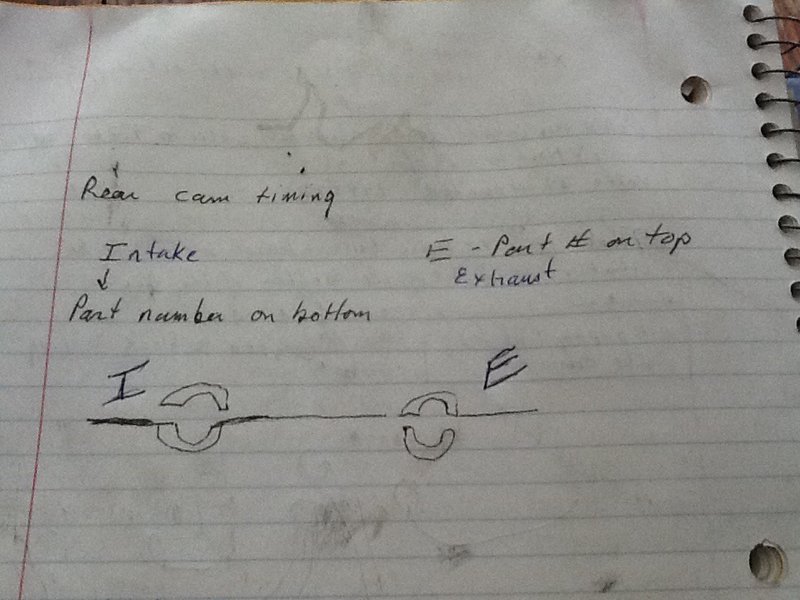 Rear cam timing
Intake
E - Part # on top
Exhaust
Part number on bottom
I
E